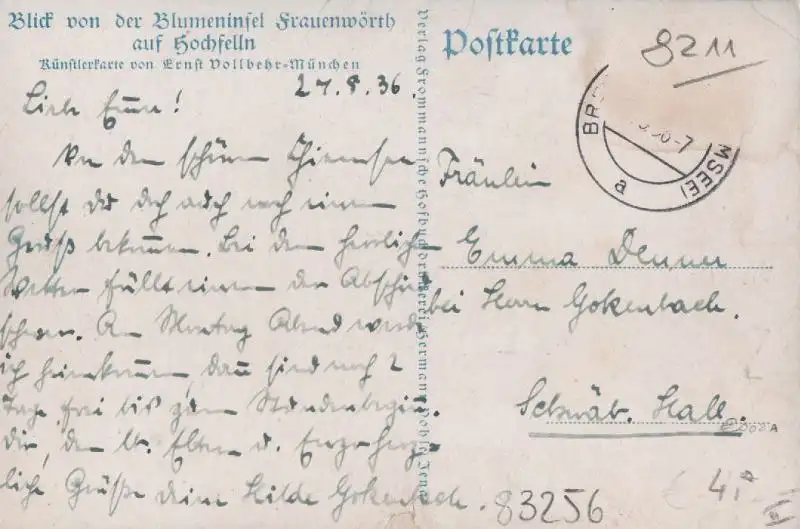 Blick von der Blumeninsel Frauenwörth
auf Hochfelln
Künstlerkarte von Ernst Vollbehr-München
27.8.36.
Liebe Emma!
An dem schönen Chiemsee
sollst du doch auch noch einen
Gruß bekommen. Bei dem herrlichen
Wetter fällt einem der Abschied
schwer. Am Montag Abend werde
ich heimkommen, dann sind noch 2
Tage frei bis zum Stundenbeginn.
Dir, den lb. Eltern u.
liche Grüße deine Hilde Gokenbach.
Verlag Frommannsche Hofbuchdruckerei Hermann Pohle Jena
Postkarte
8211
a
MSEE
Fräulein
Emma
bei Herrn Gokenbach.
Schwäb. Hall.
83256
4,-